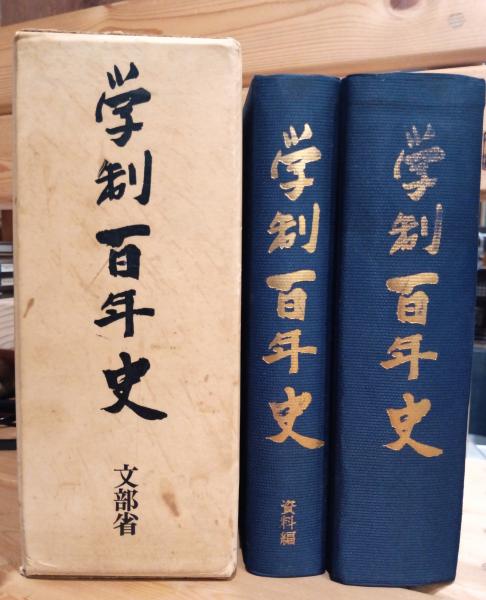 学制百年史
文部省
学制百年史
資料編
学制百年史